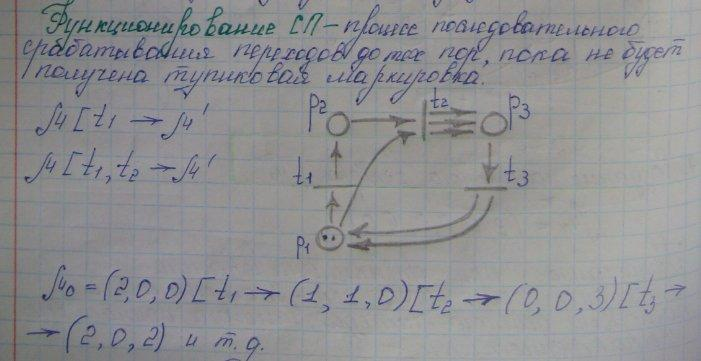 Функционирование СП – процесс последовательного
срабатывания переходов до тех пор, пока не будет
получена тупиковая маркировка.
μ [t1 → μ'
μ [t1, t2 → μ'
p2 t2 p3
t1 t3
p1
μ0 = (2,0,0) [t1 → (1, 1, 0) [t2 → (0, 0, 3) [t3 →
→ (2, 0, 2) и т.д.